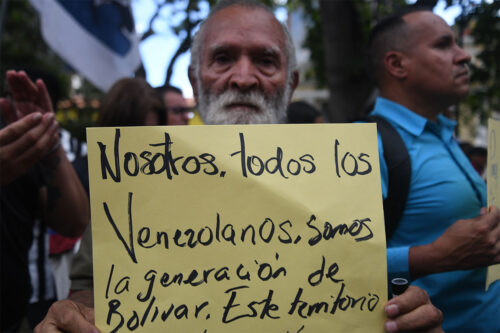 Nosotros, todos los
Venezolanos, somos
la generación de
Bolívar. Este territorio